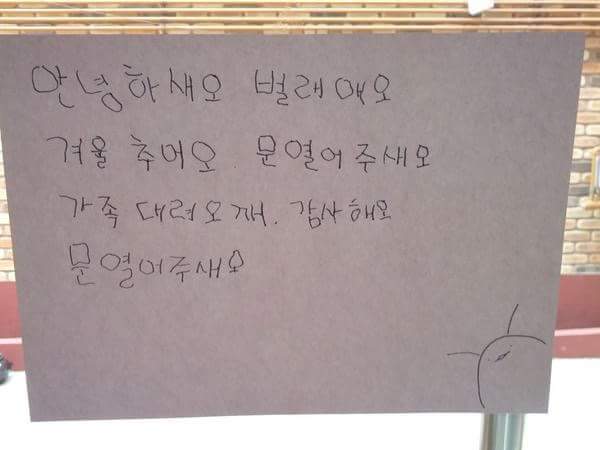 안녕하새오 벌래애오
겨울 추어오. 문열어주새오
가족 대려오깨. 감사해오
문열어주새오